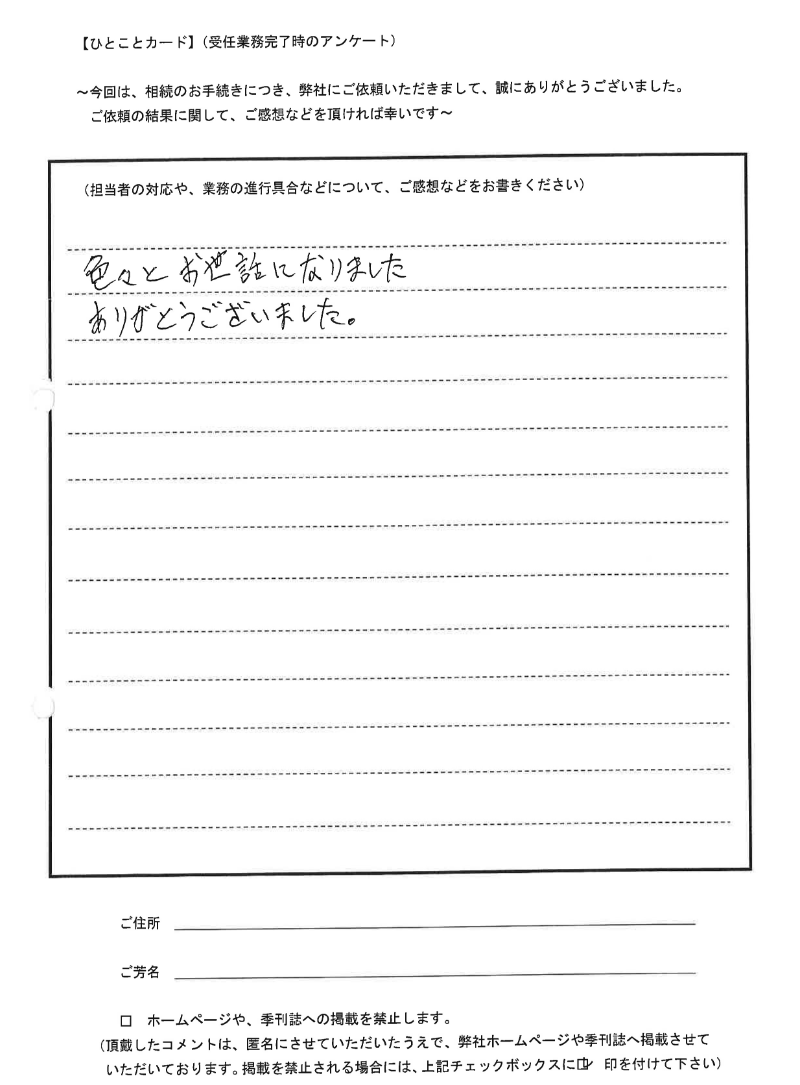 【ひとことカード】（受任業務完了時のアンケート）
～今回は、相続のお手続きにつき、弊社にご依頼いただきまして、誠にありがとうございました。
ご依頼の結果に関して、ご感想などを頂ければ幸いです～
（担当者の対応や、業務の進行具合などについて、ご感想などをお書きください）
色々とお世話になりました
ありがとうございました。
ご住所
ご芳名
□ ホームページや、季刊誌への掲載を禁止します。
（頂戴したコメントは、匿名にさせていただいたうえで、弊社ホームページや季刊誌へ掲載させて
いただいております。掲載を禁止される場合には、上記チェックボックスに☑ 印を付けて下さい）